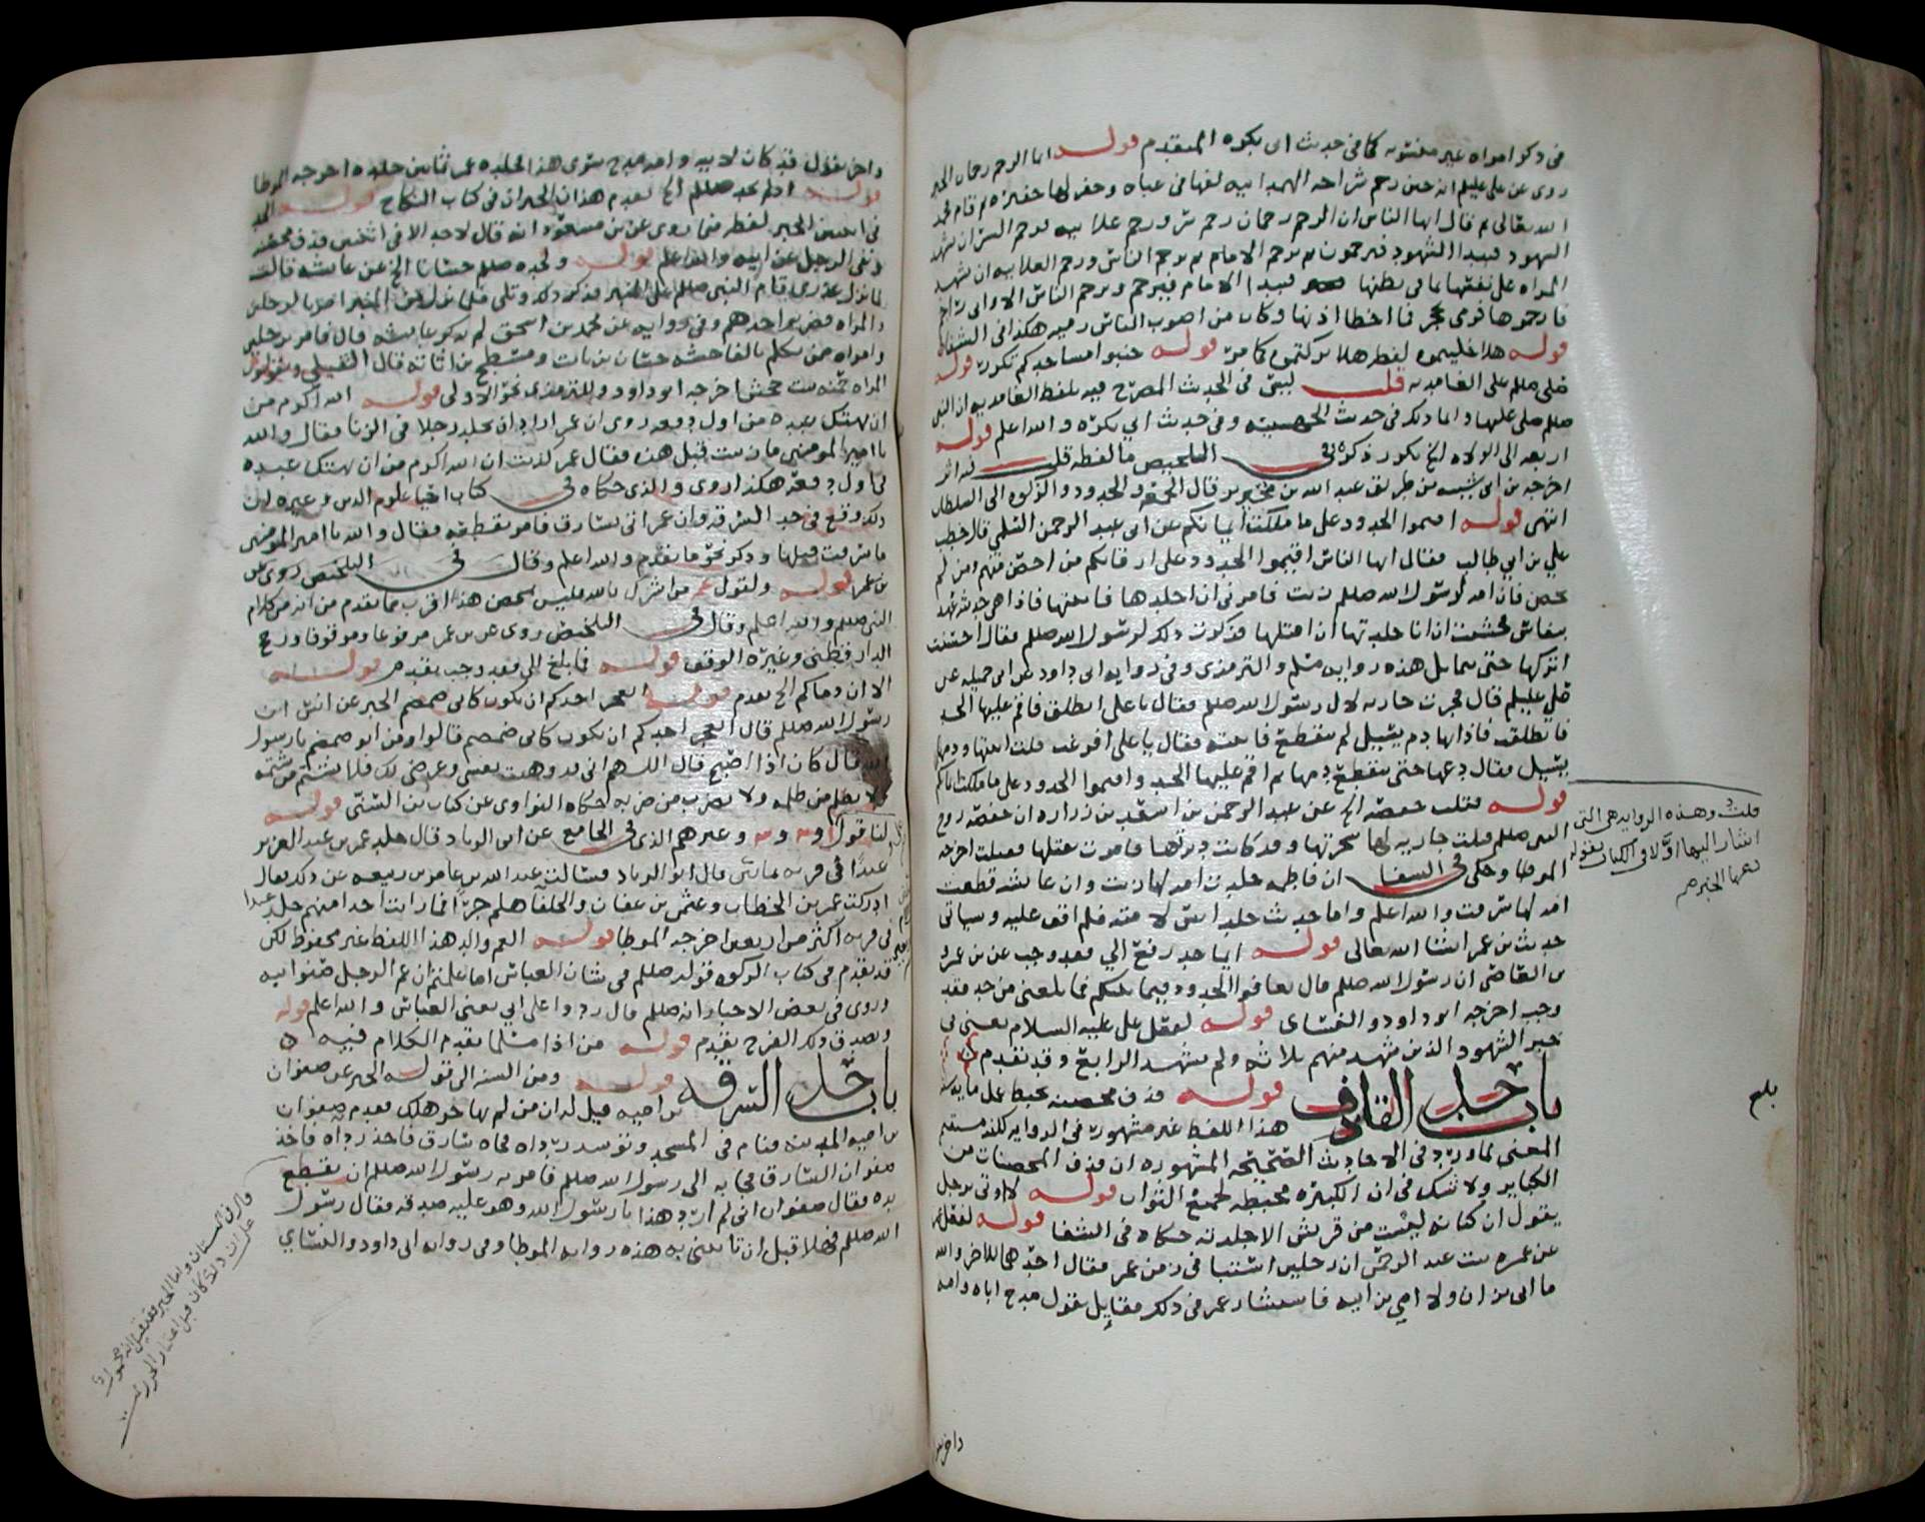 في ذكر امراه غير مفتونه كما في حديث ابي بكره المتقدم قوله انما الرجم رجمان الخبر
روى عن علي عليلم انه حين رجم شراحه الهمدانيه لفها في عباه وحفر لها حفيره ثم قام فحمد
الله تعالى ثم قال ايها الناس ان الرجم رجمان رجم سر ورجم علانيه فرجم السر ان يشهد
الشهود فيبدا الشهود فيرجمون ثم يرجم الامام ثم يرجم الناس ورجم العلانيه ان تشهد
المراه على نفسها بما في بطنها فيبدا الامام فيرجم ويرجم الناس الا واني راجم
فارجموها فرمى بحجر فما اخطا اذنها وكان من اصوب الناس رميه هكذا في الشفا
قوله هلا خليتموه لفظه هلا تركتموه كما مر قوله جنبوا مساجدكم تكرر قوله
صلى صللم على الغامديه قلت ليس في الحديث المصرح فيه بلفظ الغامديه ان النبي
صللم صلى عليها وانما ذلك في حديث الجهنيه وفي حديث ابي بكره والله اعلم قوله
اربعه الى الولاه الخ تكرر ذكره في التلخيص ما لفظه قلت فيه اثر
اخرجه بن ابي شيبه من طريق عبد الله بن محيريز قال الجمعه والحدود والزكوه الى السلطان
انتهى قوله اقيموا الحدود على ما ملكت ايمانكم عن ابي عبد الرحمن السلمي قال خطب
علي بن ابي طالب فقال ايها الناس اقيموا الحدود على ارقائكم من احصن منهم ومن لم
يحصن فان امه لرسول الله صللم زنت فامرني ان اجلدها فاتيتها فاذا هي حديثه عهد
بنفاس فخشيت ان انا جلدتها ان اقتلها فذكرت ذلك لرسول الله صللم فقال احسنت
اتركها حتى تماثل هذه روايه مسلم والترمذي وفي روايه ابي داود عن ابي جميله عن
علي عليلم قال فجرت جاريه لال رسول الله صللم فقال يا علي انطلق فاقم عليها الحد
فانطلقت فاذا بها دم يسيل لم ينقطع فاتيته فقال يا علي افرغت قلت اتيتها ودمها
يسيل فقال دعها حتى ينقطع دمها ثم اقم عليها الحد واقيموا الحدود على ما ملكت ايمانكم
قوله فقتلت حفصه الخ عن عبد الرحمن بن اسعد بن زراره ان حفصه زوج
النبي صللم قتلت جاريه لها سحرتها وقد كانت دبرتها فامرت بقتلها فقتلت اخرجه
الموطا وحكى في الشفا ان فاطمه جلدت امه لها زنت وان عائشه قطعت
امه لها سرقت والله اعلم واما حديث جلد انس لامته فلم اقف عليه وسياتي
حديث بن عمر انشا الله تعالى قوله ايما حد رفع الي فقد وجب عن بن عمرو
بن العاص ان رسول الله صللم قال تعافوا الحدود فيما بينكم فما بلغني من حد فقد
وجب اخرجه ابو داود والنسائي قوله لفعل علي عليه السلام يعني في
خبر الشهود الذين شهد منهم ثلاثه ولم يشهد الرابع وقد تقدم
باب حد القاذف قوله قذف محصنه يحبط عمل مايه سنه
هذا اللفظ غير مشهور في الروايه لكنه مستقيم
المعنى لما ورد في الاحاديث الصحيحه المشهوره ان قذف المحصنات من
الكباير ولا شك في ان الكبيره محبطه لجميع الثواب قوله لا اوتى برجل
يقول ان كنانه ليست من قريش الا جلدته حكاه في الشفا قوله لفعل عمر
عن عمره بنت عبد الرحمن ان رجلين استبا في زمن عمر فقال احدهما للاخر والله
ما ابي بزان ولا امي بزانيه فاستشار عمر في ذلك فقايل يقول مدح اباه وامه
قلت وهذه الروايه هي التي
اشار اليها اولا في الكتاب بقوله
دعها الخبر
بلغ
واخر يقول
واخر يقول قد كان لابيه وامه مدح سوى هذا فجلده عمر ثمانين جلده اخرجه الموطا
قوله تقدم هذان الخبران في كتاب النكاح قوله
في اثنين الخبر لفظه فيما روى عن بن مسعود انه قال لا حد الا في اثنتين قذف محصنه
ونفى الرجل عن ابيه والله اعلم قوله ولجلده صللم حسانا الخ عن عائشه قالت
لما نزل عذري قام النبي صللم على المنبر فذكر ذلك وتلى فلما نزل من المنبر امر بالرجلين
والمراه فضربوا حدهم وفي روايه عن محمد بن اسحق لم يذكر عايشه قال فامر برجلين
وامراه ممن تكلم بالفاحشه حسان بن ثابت ومسطح بن اثاثه قال النفيلي ويقولون
المراه حمنه بنت جحش اخرجه ابو داود وللترمذي نحو الاولى قوله الله اكرم من
ان يهتك عبده من اول دفعه روى ان عمر اراد ان يجلد رجلا في الزنا فقال والله
يا امير المومنين ما زنيت قبل هذه فقال عمر كذبت ان الله اكرم من ان يهتك عبده
في اول دفعه هكذا روى والذي حكاه في كتاب احيا علوم الدين وغيره ان
ذلك وقع في حد السرقه وان عمر اتي بسارق فامر بقطعه فقال والله يا امير المومنين
ما سرقت قبلها وذكر نحو ما تقدم والله اعلم وقال في التلخيص روى عن
بن عمر قوله ولقول عمر من اشرك بالله فليس بمحصن هذا اقرب مما تقدم من انه من كلام
النبي صللم والله اعلم وقال في التلخيص روى عن بن عمر مرفوعا وموقوفا ورجح
الدارقطني وغيره الوقف قوله فما بلغ الي فقد وجب تقدم قوله
الا ان دماكم الخ تقدم قوله ايعجز احدكم ان يكون كابي ضمضم الخبر عن انس ان
رسول الله صللم قال ايعجز احدكم ان يكون كابي ضمضم قالوا ومن ابو ضمضم يا رسول
الله قال كان اذا اصبح قال اللهم اني قد وهبت نفسي وعرضي لك فلا يشتم من شتمه
ولا يظلم من ظلمه ولا يضرب من ضربه حكاه النواوي عن كتاب بن السني قوله
لنا قول وغيرهم الذي في الجامع عن ابي الزناد قال جلد عمر بن عبد العزيز
عبدا في فريه ثمانين قال ابو الزناد فسالت عبد الله بن عامر بن ربيعه عن ذلك فقال
ادركت عمر بن الخطاب وعثمن بن عفان والخلفا هلم جرا فما رايت احدا منهم جلد عبدا
في فريه اكثر من اربعين اخرجه الموطا قوله العم والد هذا اللفظ غير محفوظ لكن
قد تقدم في كتاب الزكوه قوله صللم في شان العباس اما علمتم ان عم الرجل صنو ابيه
وروى في بعض الاخبار انه صللم قال ردوا علي ابي يعني العباس والله اعلم قوله
ويصدق ذلك الفرج تقدم قوله من اذا مسلما تقدم الكلام فيه
باب حد السرقه قوله ومن السنه الى قوله الخبر عن صفوان
بن اميه قيل له ان من لم يهاجر هلك فقدم صفوان
بن اميه المدينه فنام في المسجد وتوسد رداه فجاه سارق فاخذ رداه فاخذ
صفوان السارق فجا به الى رسول الله صللم فامر به رسول الله صللم ان يقطع
يده فقال صفوان اني لم ارد هذا يا رسول الله وهو عليه صدقه فقال رسول
الله صللم فهلا قبل ان تاتيني به هذه روايه الموطا وفي روايه ابي داود والنسائي